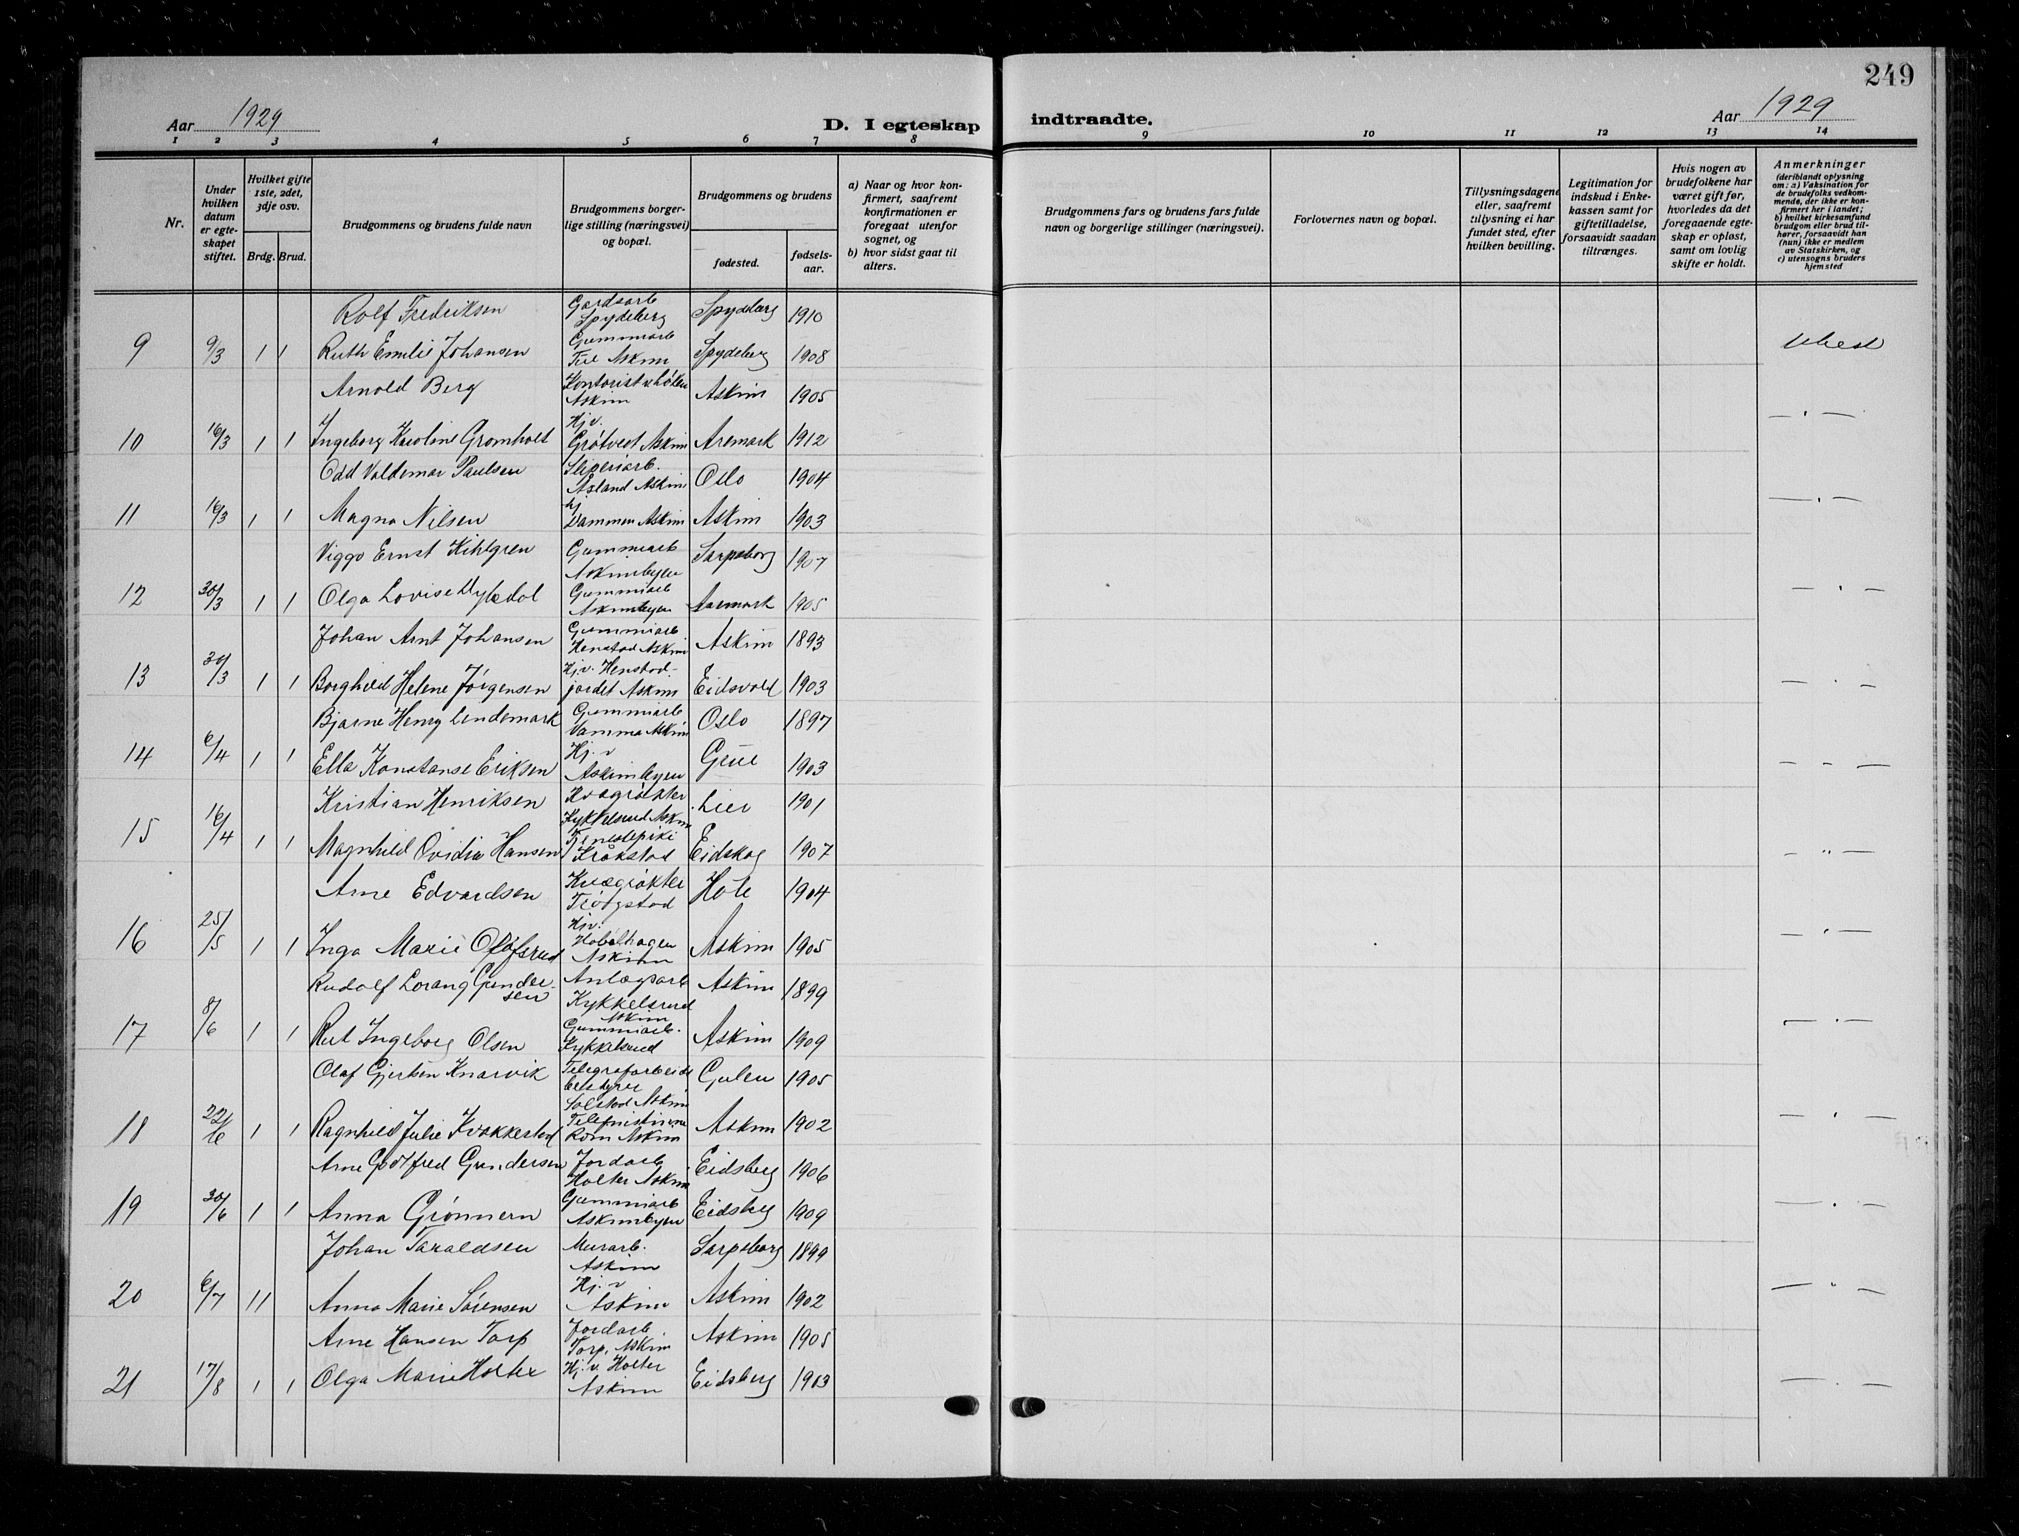 249
Aar 1929
D. I egteskap indtraadte.
Aar 1929
1 2 3 4 5 6 7 8 9 10 11 12 13 14
Nr.
Under hvilken datum er egteskapet stiftet.
Hvilket gifte 1ste, 2det, 3dje osv.
Brdg. Brud.
Brudgommens og brudens fulde navn
Brudgommens borgerlige stilling (næringsvei) og bopæl.
Brudgommens og brudens
fødested.
fødselsaar.
a) Naar og hvor konfirmert, saafremt konfirmationen er foregaat utenfor sognet, og
b) hvor sidst gaat til alters.
Brudgommens fars og brudens fars fulde navn og borgerlige stillinger (næringsvei).
Forlovernes navn og bopæl.
Tillysningsdagene eller, saafremt tillysning ei har fundet sted, efter hvilken bevilling.
Legitimation for indskud i Enkekassen samt for giftetilladelse, forsaavidt saadan tiltrænges.
Hvis nogen av brudefolkene har været gift før, hvorledes da det foregaaende egteskap er opløst, samt om lovlig skifte er holdt.
Anmerkninger (deriblandt oplysning om: a) Vaksination for de brudefolks vedkommende, der ikke er konfirmert her i landet; b) hvilket kirkesamfund brudgom eller brud tilhører, forsaavidt han (hun) ikke er medlem av Statskirken, og c) utensogns bruders hjemsted
Rolf Fredriksen Gardsarb Spydeberg Spydeberg 1910
9 9/3 1 1 Ruth Emilie Johansen Gummiarb Askim Spydeberg 1908
Arnold Berg Kontorist Askim Askim 1905
10 16/3 1 1 Ingeborg Karoline Gromholt Hjv. Grøtvedt Askim Aremark 1912 — " —
Odd Valdemar Paulsen Sliperiarb. Åsland Askim Oslo 1904
11 16/3 1 1 Magna Nilsen hj Dammen Askim Askim 1903 — " —
Viggo Ernst Kihlgren Gummiarb Askimbyen Sarpsborg 1907
12 30/3 1 1 Olga Lovise Gummiarb Askimbyen Aremark 1905 — " —
Johan Arnt Johansen Gummiarb Henstad Askim Askim 1893
13 30/3 1 1 Borghild Helene Jørgensen Hjv. Henstad-jordet Askim Eidsvold 1903 — " —
Bjarne Henry Lindemark Gummiarb Vamma Askim Oslo 1897
14 6/4 1 1 Ella Konstanse Eriksen Hj. v Askimbyen Grue 1903 — " —
Kristian Henriksen Kvægrøkter Kykkelsrud Askim Lier 1901
15 16/4 1 1 Magnhild Ovidia Hansen Tjenestepike Kråkstad Eidskog 1907 — " —
Arne Edvardsen Kvægrøkter Trøgstad Hole 1904
16 25/5 1 1 Inga Marie Olofsrud Hjv. Askim Askim 1905 — " —
Rudolf Lorang Gundersen Anlægsarb Kykkelsrud Askim Askim 1899
17 8/6 1 1 Rut Ingeborg Olsen Gummiarb. Kykkelsrud Askim 1909 — " —
Olaf Gjertsen Knarvik Telegrafarbeids bestyrer Solstad Askim Gulen 1905
18 22/6 1 1 Ragnhild Julie Kvakkestad Telefonistinne Rom Askim Askim 1902 — " —
Arne Godtfred Gundersen Jordarb Holter Askim Eidsberg 1906
19 30/6 1 1 Anna Grønnern Gummiarb Askimbyen Eidsberg 1909 — " —
Johan Taraldsen Murarb. Askim Sarpsborg 1899
20 6/7 1 1 Anna Marie Sørensen Hj. v Askim Askim 1902 — " —
Arne Hansen Torp Jordarb. Torp, Askim Askim 1905
21 17/8 1 1 Olga Marie Holter Hj. v. Holter Askim Eidsberg 1903 — " —